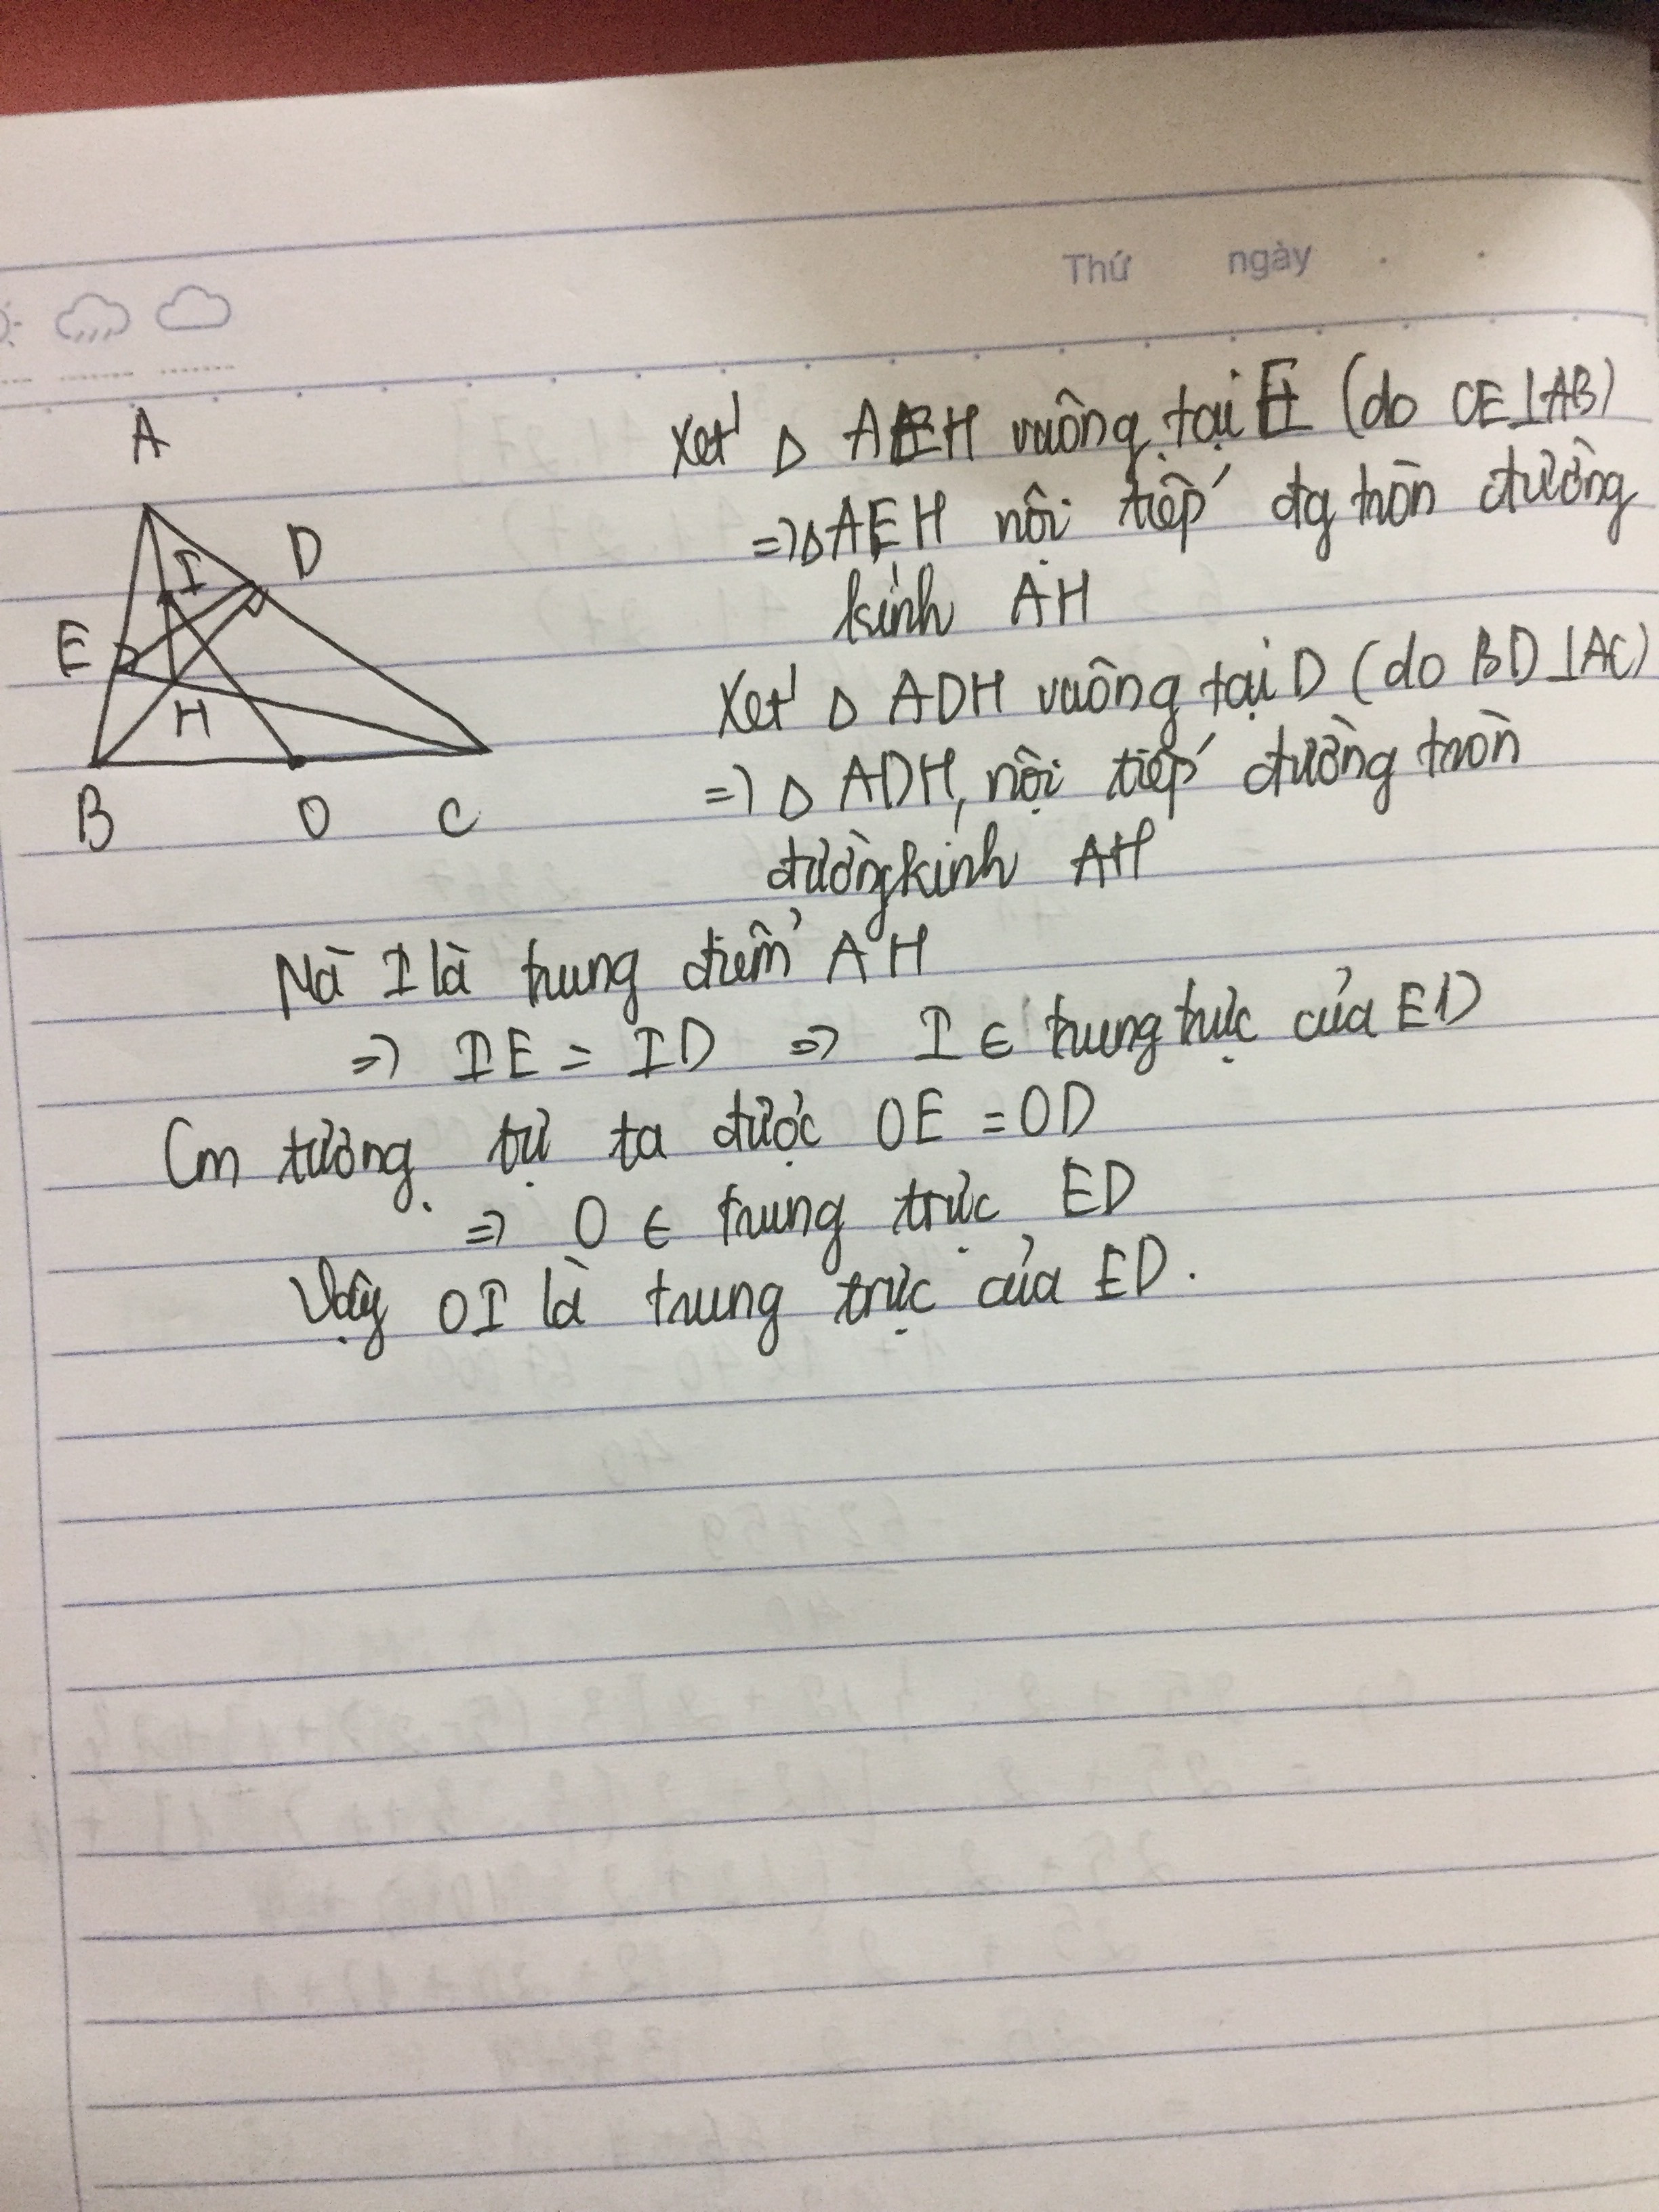 Thứ ngày
A
I
D
E
H
B
O
C
Xét Δ AEH vuông tại E (do CE⊥AB)
=> Δ AEH nội tiếp đg tròn đường
kính AH
Xét Δ ADH vuông tại D (do BD⊥AC)
=> Δ ADH nội tiếp đường tròn
đường kính AH
Mà I là trung điểm AH
=> IE = ID => I ∈ trung trực của ED
Cm tương tự ta được OE = OD
=> O ∈ trung trực ED
Vậy OI là trung trực của ED.